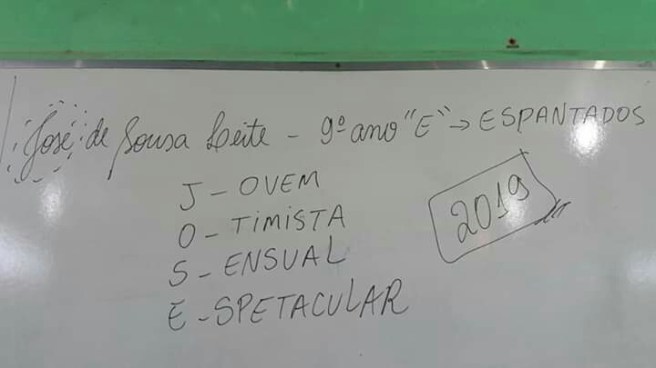 José de Sousa Leite - 9º ano "E" → ESPANTADOS
J - OVEM
O - TIMISTA
S - ENSUAL
E - SPETACULAR
2019